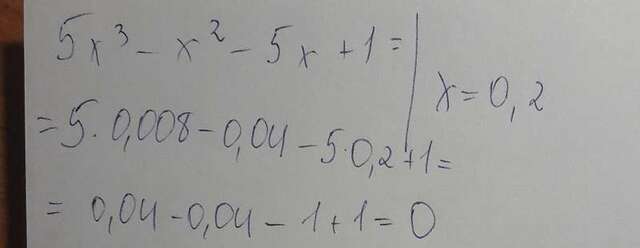 5x³ - x² - 5x + 1 = | x = 0,2
= 5 · 0,008 - 0,04 - 5 · 0,2 + 1 =
= 0,04 - 0,04 - 1 + 1 = 0